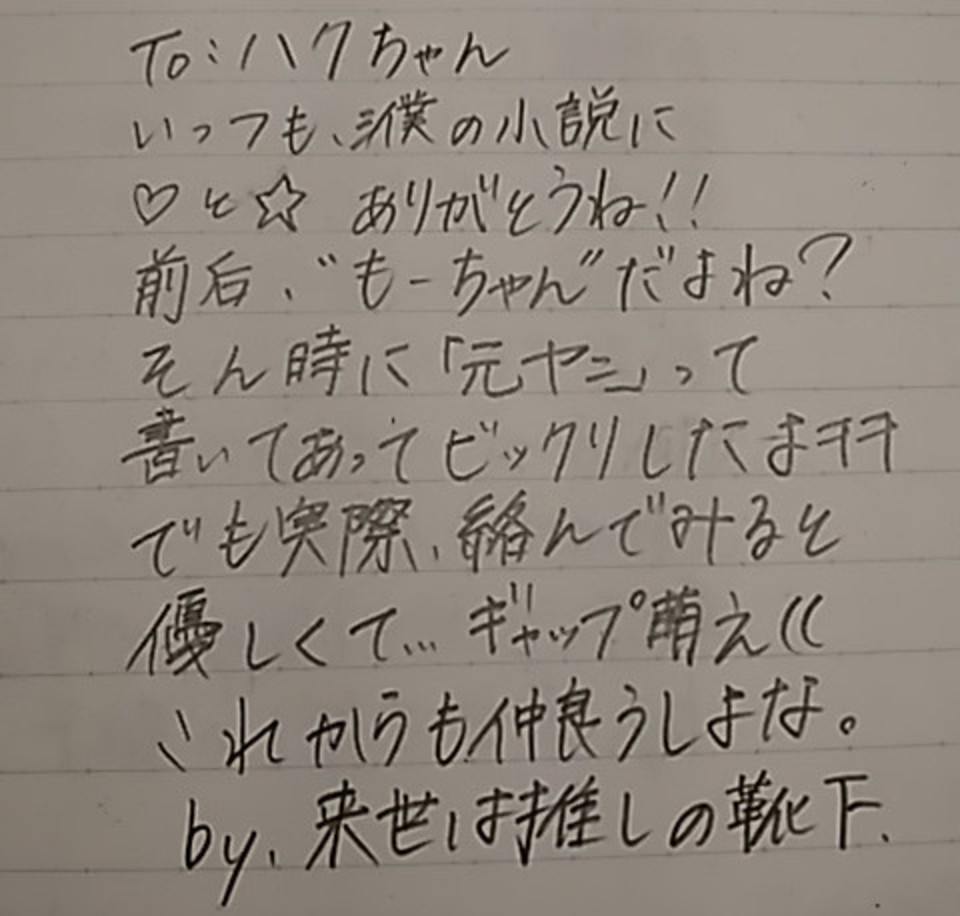 To:ハクちゃん
いっつも、僕の小説に
♡と☆ ありがとうね!!
前后、“もーちゃん”だよね?
そん時に「元ヤニ」って
書いてあってビックリしたよヲヲ
でも実際、絡んでみると
優しくて… ギャップ萌え((
これからも仲良うしよな。
by, 来世は推しの靴下.